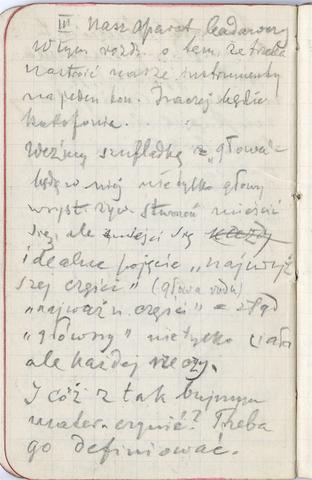 III Nasz aparat badawczy
W tym rozdz. o tem, że trzeba
nastroić nasze instrumenty
na jeden ton. Inaczej będzie
kakofonia.
Weźmy szufladkę z „głową"-
będą w niej nie tylko głowy
wszyst. żyw. stworzeń mieścić
się, ale zmieści się każdy
idealne pojęcie „najwyż
szej części" (głowa rodu)
„najważn. części" = stąd
„główny" nie tylko ciała
ale każdej rzeczy.
I cóż z tak bujnym
mater. czynić? Trzeba
go definiować.